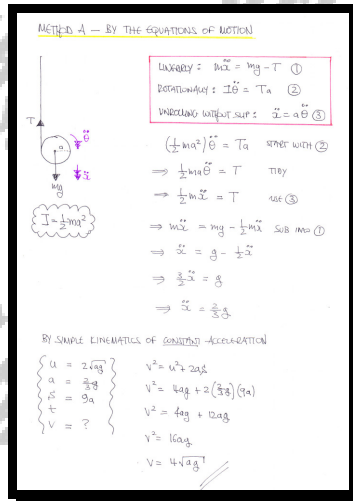 METHOD A — BY THE EQUATIONS OF MOTION
LINEARLY: mẍ = mg - T ①
ROTATIONALLY: Iθ̈ = Ta ②
UNROLLING WITHOUT SLIP: ẍ = aθ̈ ③
T
a
θ̈
ẍ
mg
I = ½ma²
(½ma²)θ̈ = Ta START WITH ②
⇒ ½maθ̈ = T TIDY
⇒ ½mẍ = T USE ③
⇒ mẍ = mg - ½mẍ SUB INTO ①
⇒ ẍ = g - ½ẍ
⇒ 3/2ẍ = g
⇒ ẍ = 2/3g
BY SIMPLE KINEMATICS OF CONSTANT ACCELERATION
u = 2√ag
a = 2/3g
s = 9a
t
v = ?
v² = u² + 2as
v² = 4ag + 2(2/3g)(9a)
v² = 4ag + 12ag
v² = 16ag
v = 4√ag